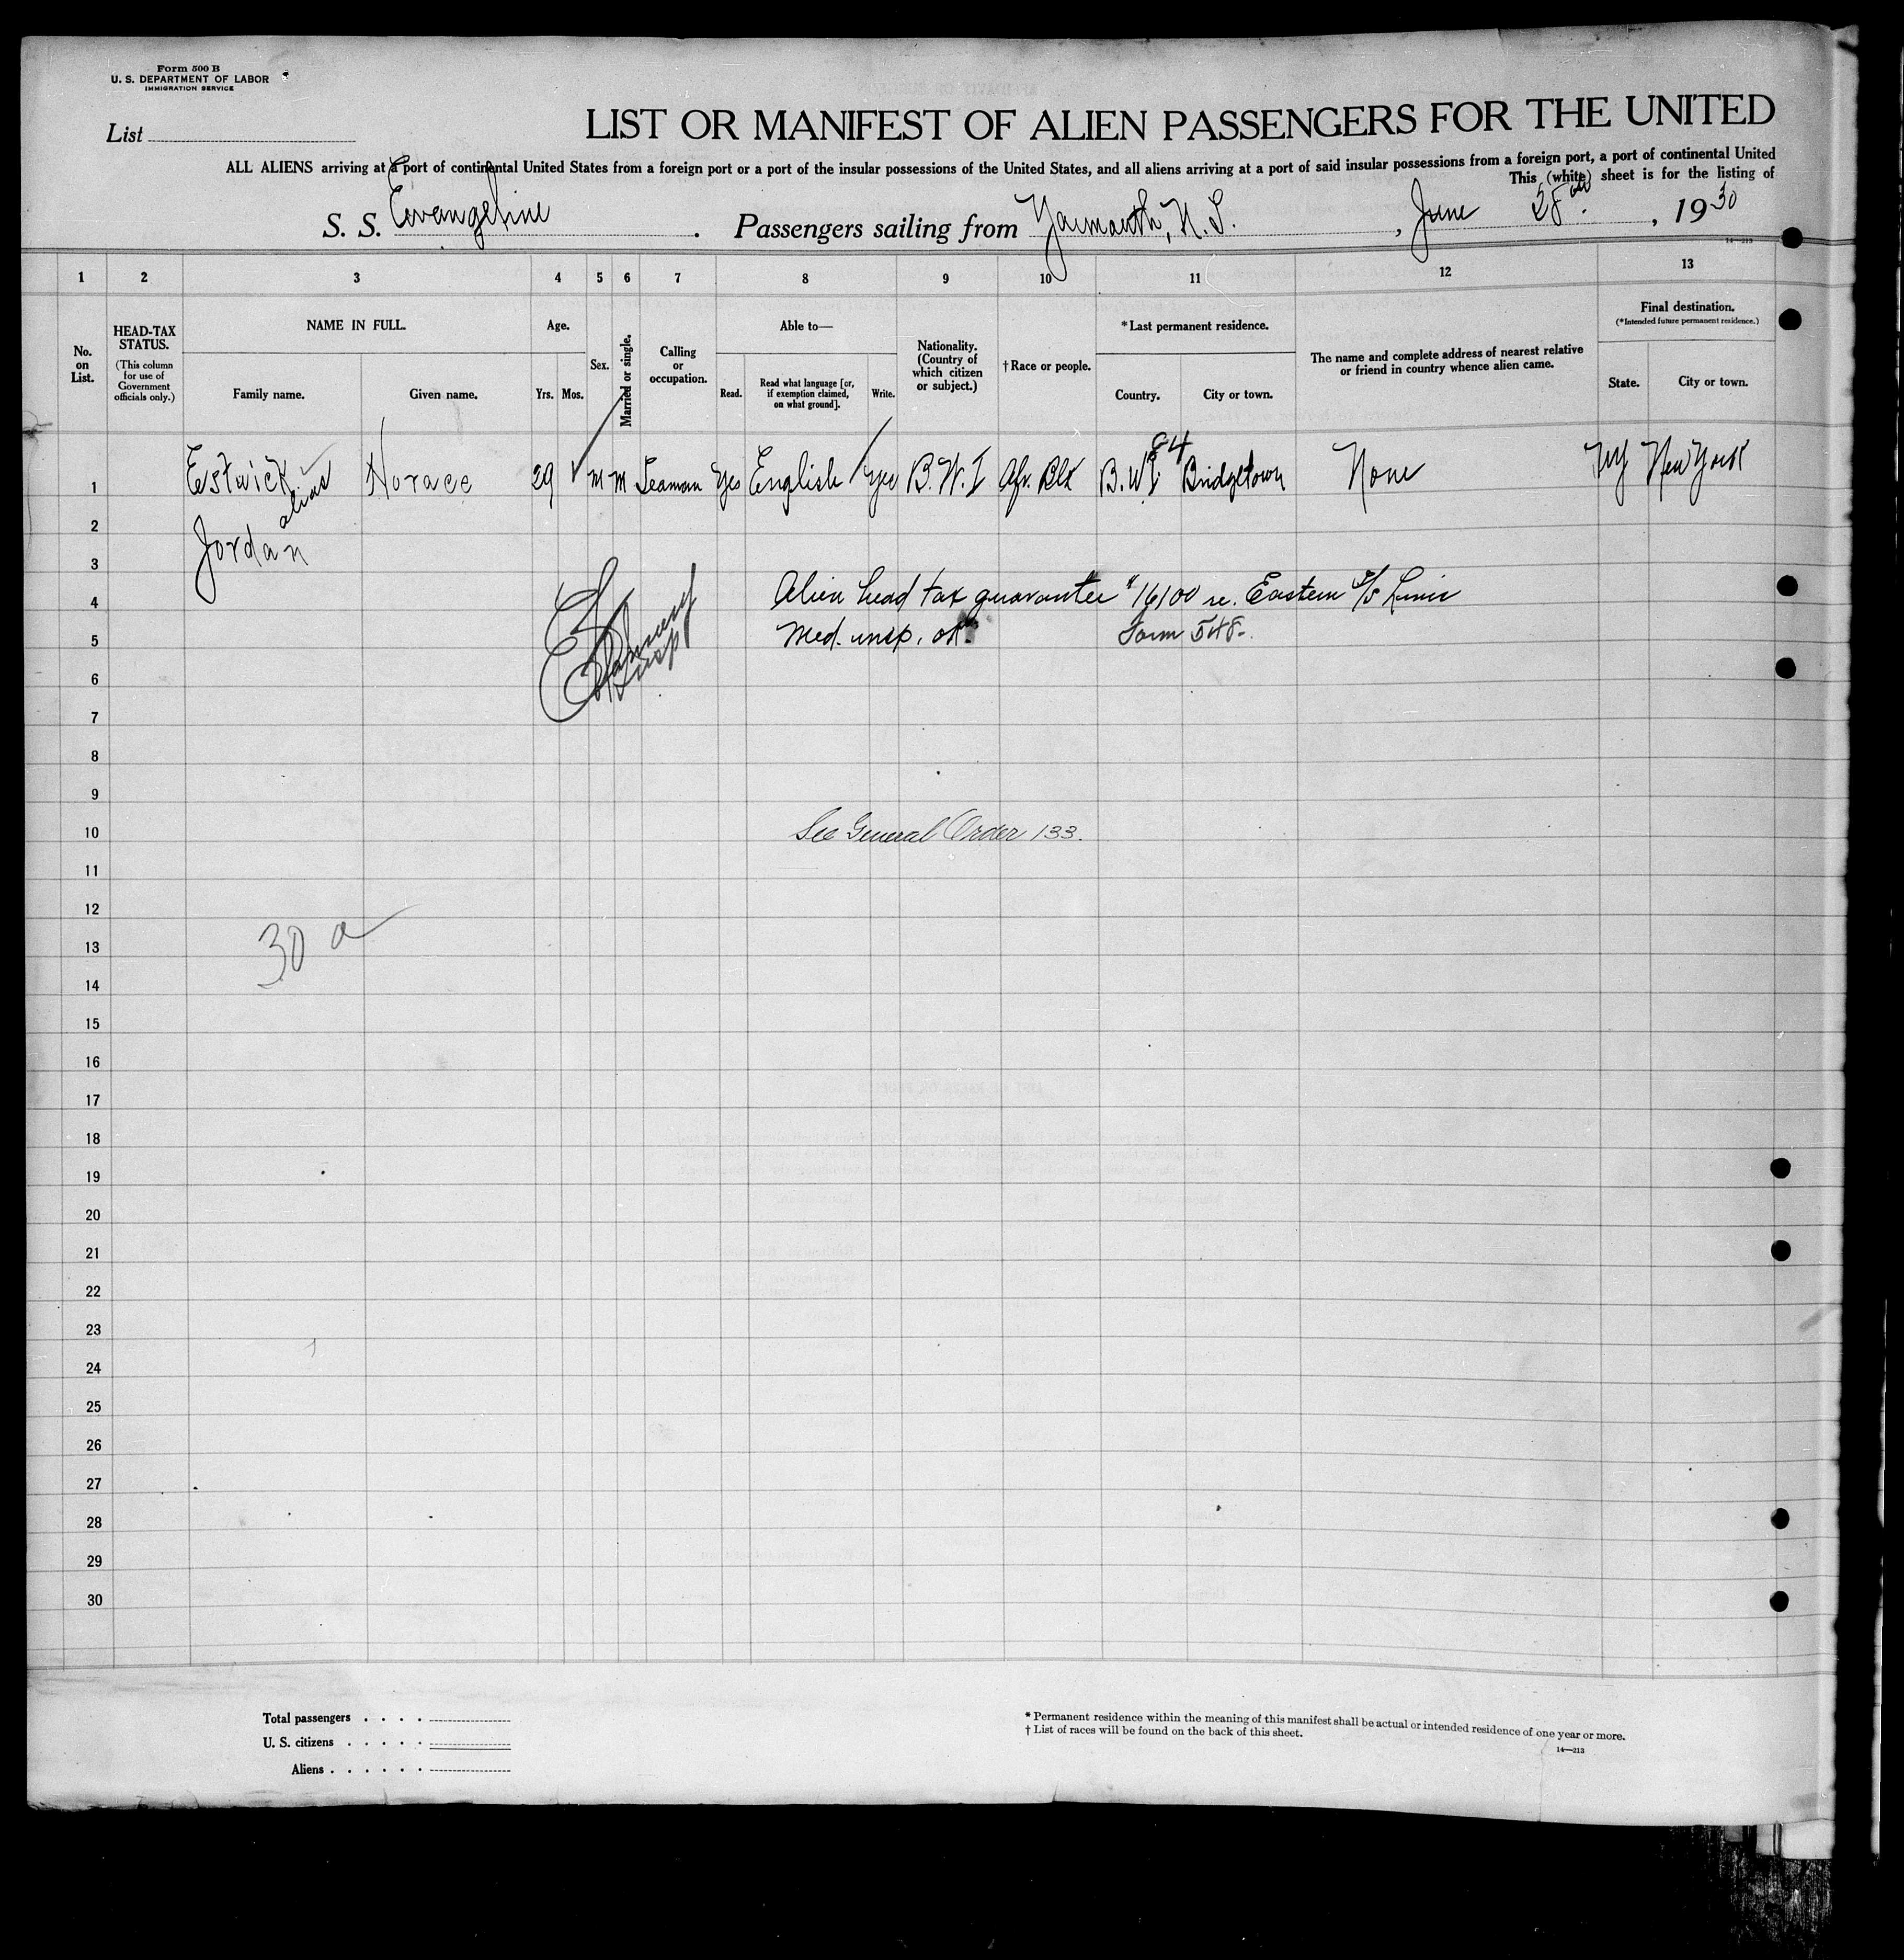 Form 500 B
U. S. DEPARTMENT OF LABOR
IMMIGRATION SERVICE
List
LIST OR MANIFEST OF ALIEN PASSENGERS FOR THE UNITED
ALL ALIENS arriving at a port of continental United States from a foreign port or a port of the insular possessions of the United States, and all aliens arriving at a port of said insular possessions from a foreign port, a port of continental United
This (white) sheet is for the listing of
S. S. Evangeline . Passengers sailing from Yarmouth, N. S. , June 28th. , 19 30
14—213
1 2 3 4 5 6 7 8 9 10 11 12 13
No. on List.
HEAD-TAX STATUS.
(This column for use of Government officials only.)
NAME IN FULL.
Family name. Given name.
Age.
Yrs. Mos.
Sex.
Married or single.
Calling or occupation.
Able to—
Read. Read what language [or, if exemption claimed, on what ground]. Write.
Nationality. (Country of which citizen or subject.)
†Race or people.
*Last permanent residence.
Country. City or town.
The name and complete address of nearest relative or friend in country whence alien came.
Final destination.
(*Intended future permanent residence.)
State. City or town.
84
1 Estwick Horace 29 M M Seaman Yes English Yes B.W.I Afr. Blk B.W.I. Bridgetown None NY New York
alias
2
Jordan
3
4 Alien head tax guarantee 16100 re. Eastern S/S Lines
5 Med. insp. ok. Form 548.
6
7
8
9
10 See General Order 133.
11
12
13 30 a
14
15
16
17
18
19
20
21
22
23
24
25
26
27
28
29
30
Total passengers . . . .
U. S. citizens . . . . .
Aliens . . . . . .
* Permanent residence within the meaning of this manifest shall be actual or intended residence of one year or more.
† List of races will be found on the back of this sheet.
14—213